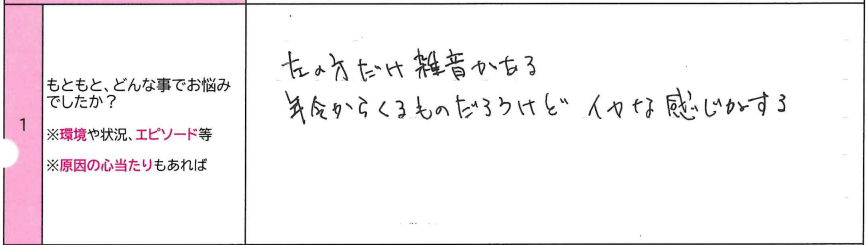 1
もともと、どんな事でお悩み
でしたか？
※環境や状況、エピソード等
※原因の心当たりもあれば
左の方だけ雑音がある
年令からくるものだろうけど イヤな感じがする